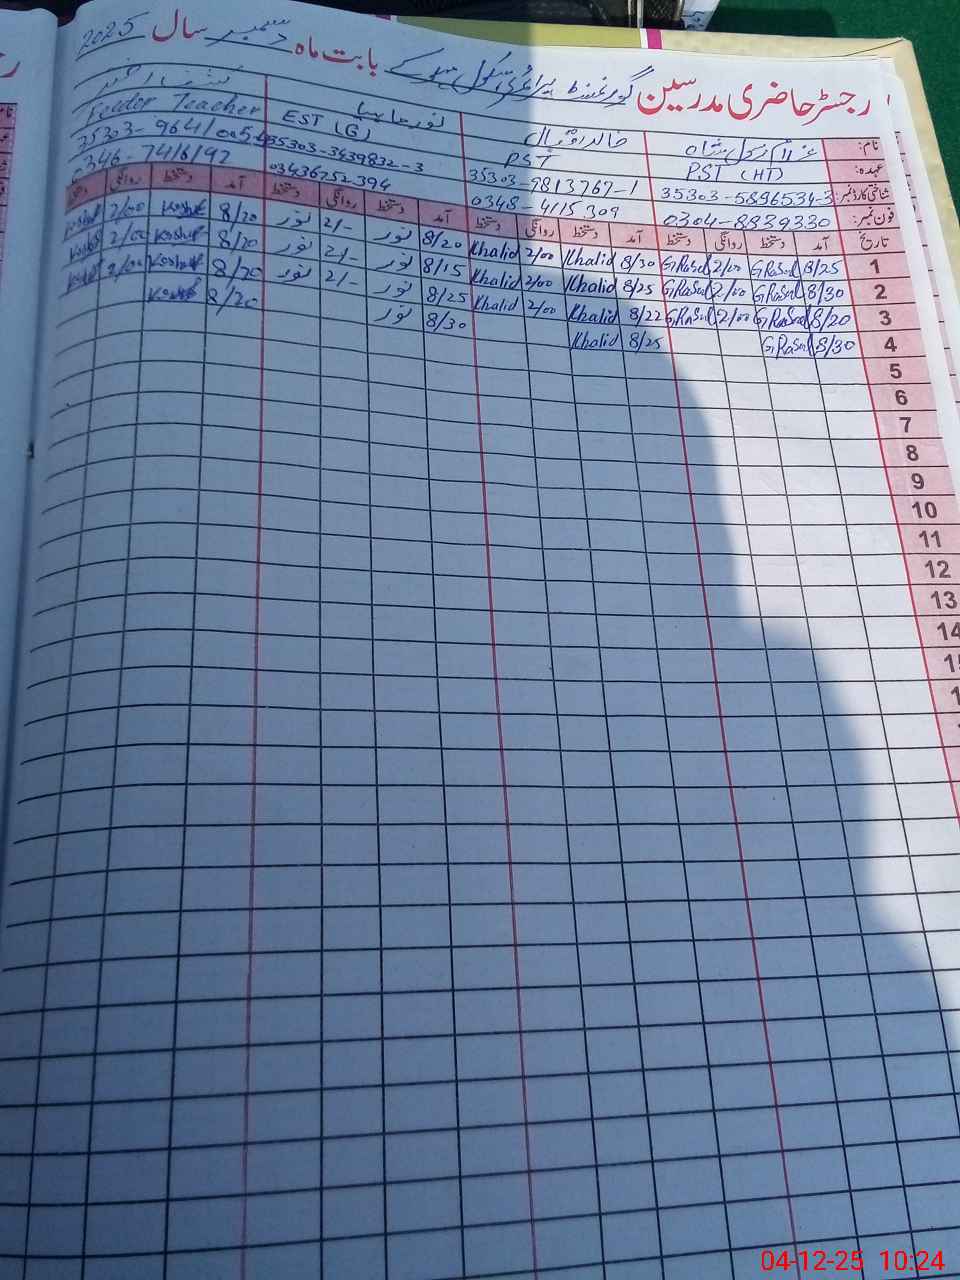 رجسٹر حاضری مدرسین گورنمنٹ پرائمری سکول بابت ماہ دسمبر سال 2025
نام: غلام رسول شاہ خالد اقبال نور
عہدہ: PST (HT) PST EST (G) Feeder Teacher
شناختی کارڈ نمبر: 35303-5896534-3 35303-9813767-1 35303-3439832-3
فون نمبر: 0304-8839330 0348-4115309 03436252394
تاریخ آمد دستخط روانگی دستخط آمد دستخط روانگی دستخط آمد دستخط روانگی دستخط آمد دستخط روانگی دستخط
1 8/25 G.Rasool 2/00 G.Rasool 8/30 Khalid 2/00 Khalid 8/20 نور 2/- نور 8/20 Kashif 2/00 Kashif
2 8/30 G.Rasool 2/00 G.Rasool 8/25 Khalid 2/00 Khalid 8/15 نور 2/- نور 8/20 Kashif 2/00 Kashif
3 8/20 G.Rasool 2/00 G.Rasool 8/22 Khalid 2/00 Khalid 8/25 نور 2/- نور 8/20 Kashif 2/00 Kashif
4 8/30 G.Rasool 8/25 Khalid 8/30 نور 8/20 Kashif
5
6
7
8
9
10
11
12
13
14
04-12-25 10:24